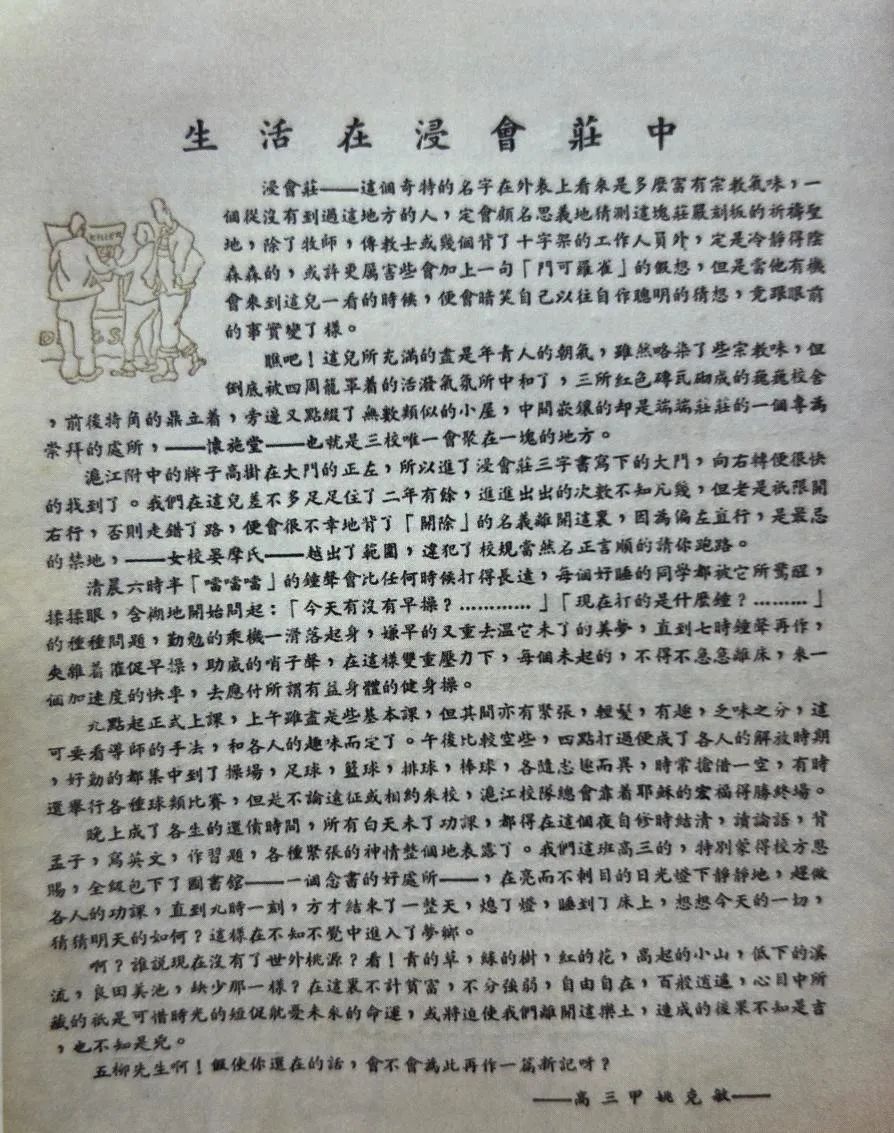 生活在浸會莊中
浸會莊——這個奇特的名字在外表上看來是多麽富有宗教氣味，一
個從沒有到過這地方的人，定會顧名思義地猜測這塊莊嚴刻板的祈禱聖
地，除了牧師，傳教士或幾個背了十字架的工作人員外，定是冷靜得陰
森森的，或許更厲害些會加上一句「門可羅雀」的假想，但是當他有機
會來到這兒一看的時候，便會暗笑自己以往自作聰明的猜想，竟跟眼前
的事實變了樣。
瞧吧！這兒所充滿的盡是年青人的朝氣，雖然略染了些宗教味，但
倒底被四周籠罩着的活潑氣氛所中和了，三所紅色磚瓦砌成的巍巍校舍
，前後犄角的鼎立着，旁邊又點綴了無數類似的小屋，中間嵌鑲的却是端端莊莊的一個專為
崇拜的處所，——懷施堂——也就是三校唯一會聚在一塊的地方。
滬江附中的牌子高掛在大門的正左，所以進了浸會莊三字書寫下的大門，向右轉便很快
的找到了。我們在這兒差不多足足住了二年有餘，進進出出的次數不知凡幾，但老是祇限開
右行，否則走錯了路，便會很不幸地背了「開除」的名義離開這裏，因為偏左直行，是最忌
的禁地，——女校晏摩氏——越出了範圍，違犯了校規當然名正言順的請你跑路。
清晨六時半「噹噹噹」的鐘聲會比任何時候打得長遠，每個好睡的同學都被它所驚醒，
揉揉眼，含糊地開始問起：「今天有沒有早操？…………」「現在打的是什麽鐘？………」
的種種問題，勤勉的乘機一滑落起身，嫌早的又重去溫它未了的美夢，直到七時鐘聲再作，
夾雜着催促早操，助威的哨子聲，在這樣雙重壓力下，每個未起的，不得不急急離床，來一
個加速度的快車，去應付所謂有益身體的健身操。
九點起正式上課，上午雖盡是些基本課，但其間亦有緊張，輕鬆，有趣，乏味之分，這
可要看導師的手法，和各人的趣味而定了。午後比較空些，四點打過便成了各人的解放時期
，好動的都集中到了操場，足球，籃球，排球，棒球，各隨志趣而異，時常搶借一空，有時
還舉行各種球類比賽，但是不論遠征或相約來校，滬江校隊總會靠着耶穌的宏福得勝終場。
晚上成了各生的還債時間，所有白天未了功課，都得在這個夜自修時結清，讀論語，背
孟子，寫英文，作習題，各種緊張的神情整個地表露了。我們這班高三的，特別蒙得校方恩
賜，全級包下了圖書館——一個念書的好處所——，在亮而不刺目的日光燈下靜靜地，趕做
各人的功課，直到九時一刻，方才結束了一整天，熄了燈，睡到了床上，想想今天的一切，
猜猜明天的如何？這樣在不知不覺中進入了夢鄉。
啊？誰說現在沒有了世外桃源？看！青的草，綠的樹，紅的花，高起的小山，低下的溪
流，良田美池，缺少那一樣？在這裏不計貧富，不分強弱，自由自在，百般逍遙，心目中所
藏的祇是可惜時光的短促躭憂未來的命運，或將迫使我們離開這樂土，造成的後果不知是吉
，也不知是兇。
五柳先生啊！假使你還在的話，會不會為此再作一篇新記呀？
——高三甲姚克敏——